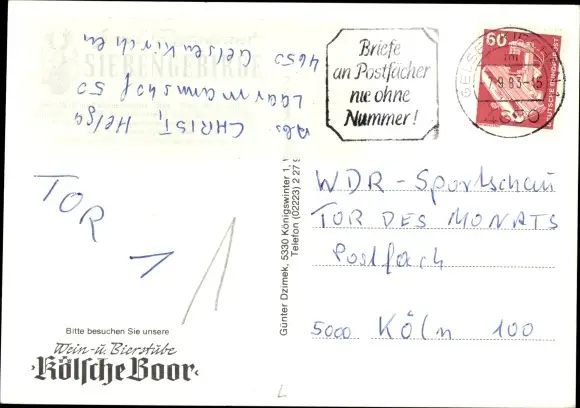 Abs
CHRIST, Helga
Laarmannshof 50
4650 Gelsenkirchen
SIEBENGEBIRGE
Briefe
an Postfächer
nie ohne
Nummer!
60
DEUTSCHE BUNDESPOST
GELSENKIRCHEN
9.83-15
4650
TOR
1
1
WDR-Sportschau
TOR DES MONATS
Postfach
5000 KÖln 100
Günter Dzimek, 5330 Königswinter 1,
Telefon (02223) 2 27 9
Bitte besuchen Sie unsere
Wein-u. Bierstube
›Kölsche Boor‹
L